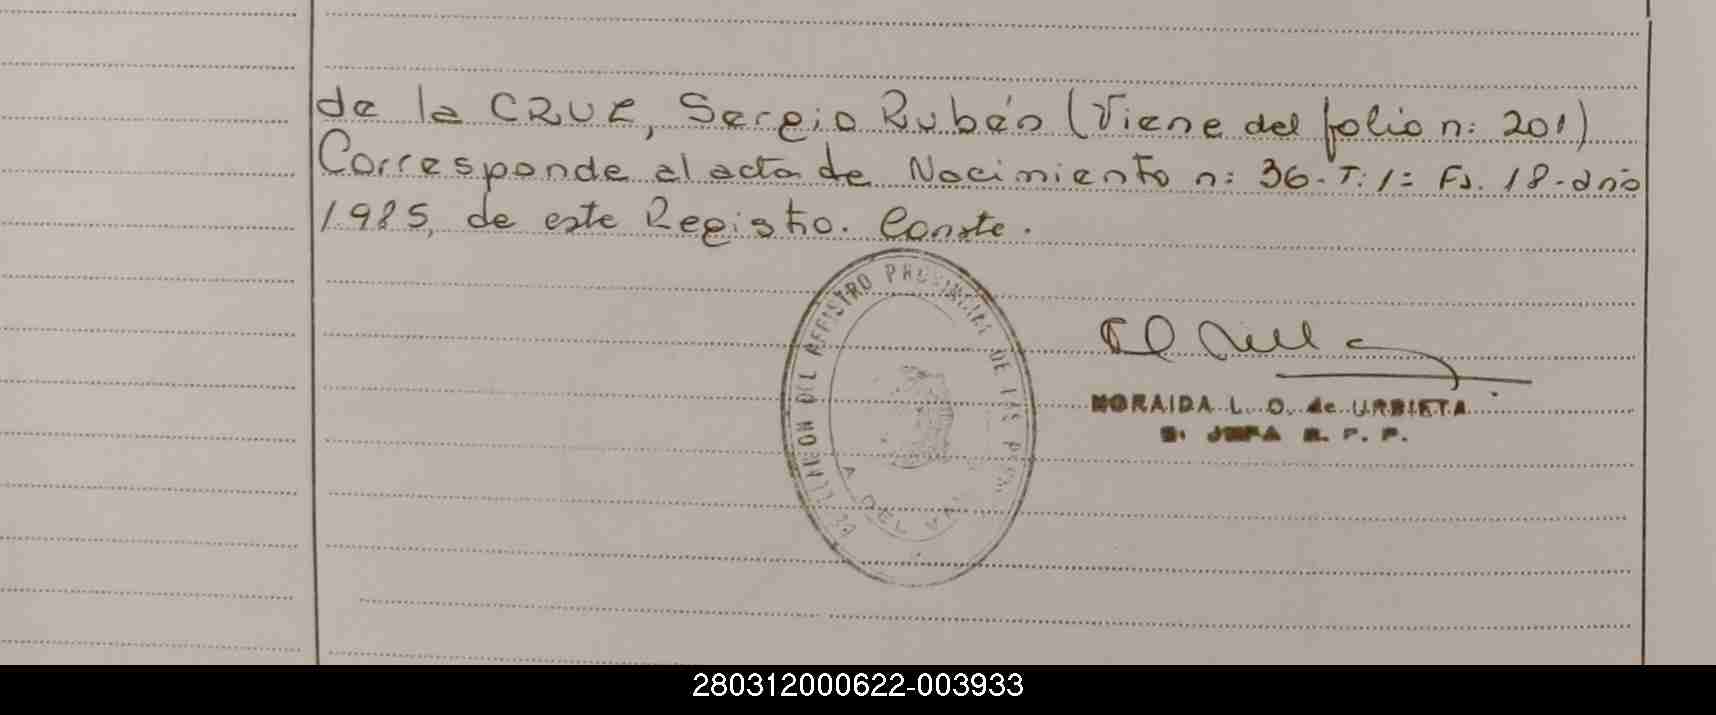 de la CRUZ, Sergio Rubén (Viene del folio n: 201)
Corresponde al acta de Nacimiento n: 36 - T: 1: Fs. 18 - año
1985, de este Registro. Conste.
DEL REGISTRO PROVINCIAL DE LAS
A DEL
NORAIDA L. O. de URBIETA
JEFA R. P. P.
280312000622-003933